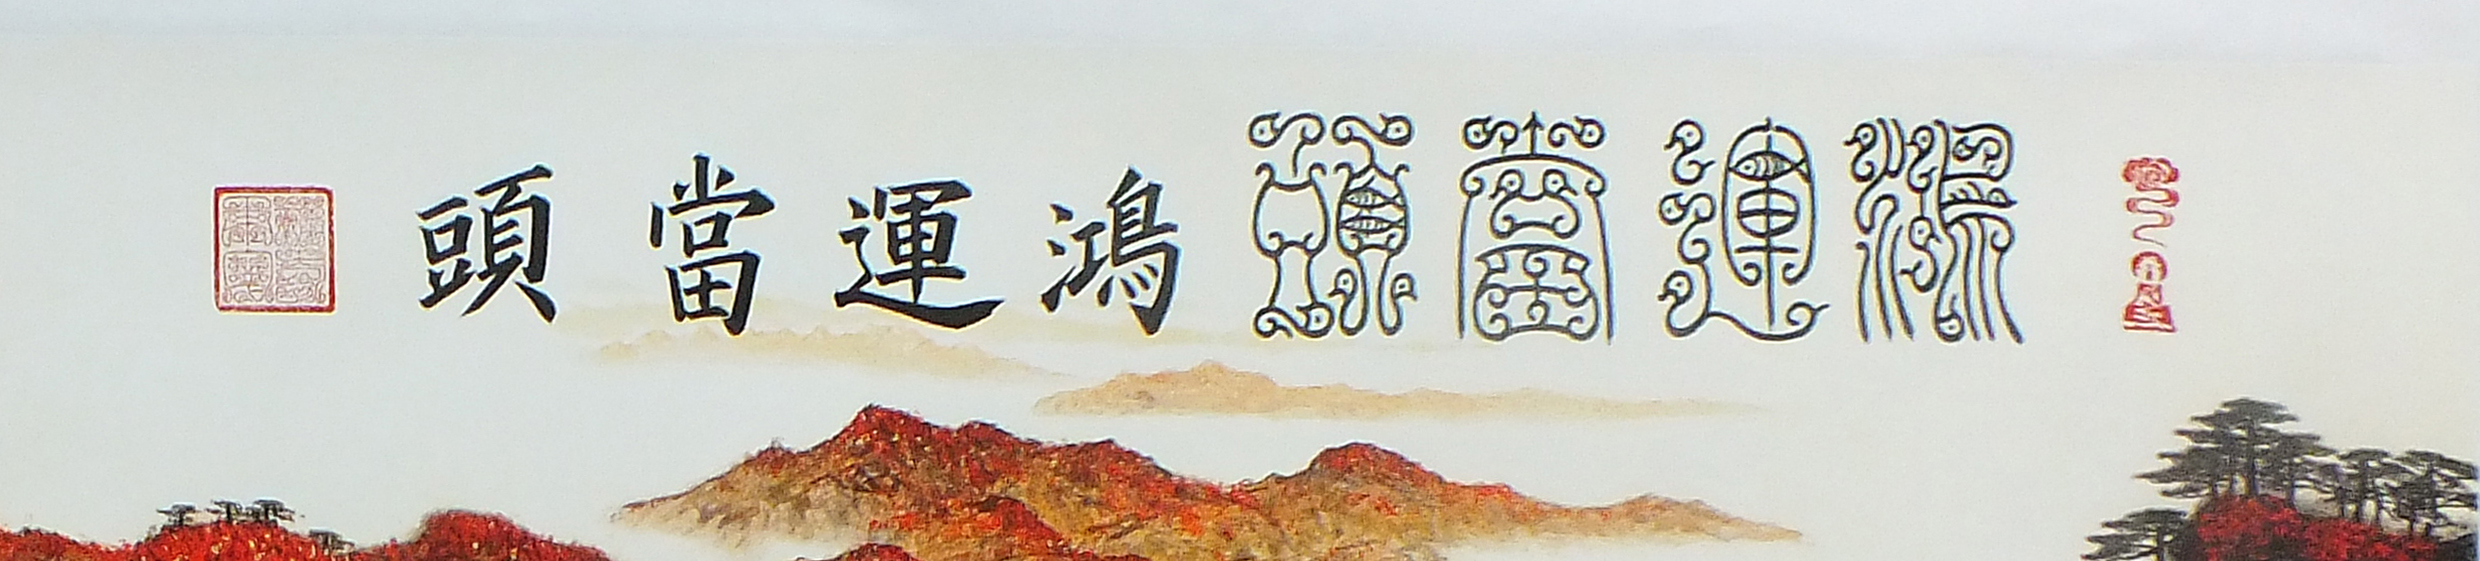 鴻運當頭 鴻運當頭